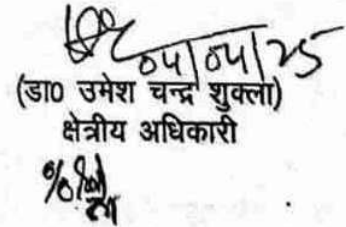 04/04/25
(डा० उमेश चन्द्र शुक्ला)
क्षेत्रीय अधिकारी